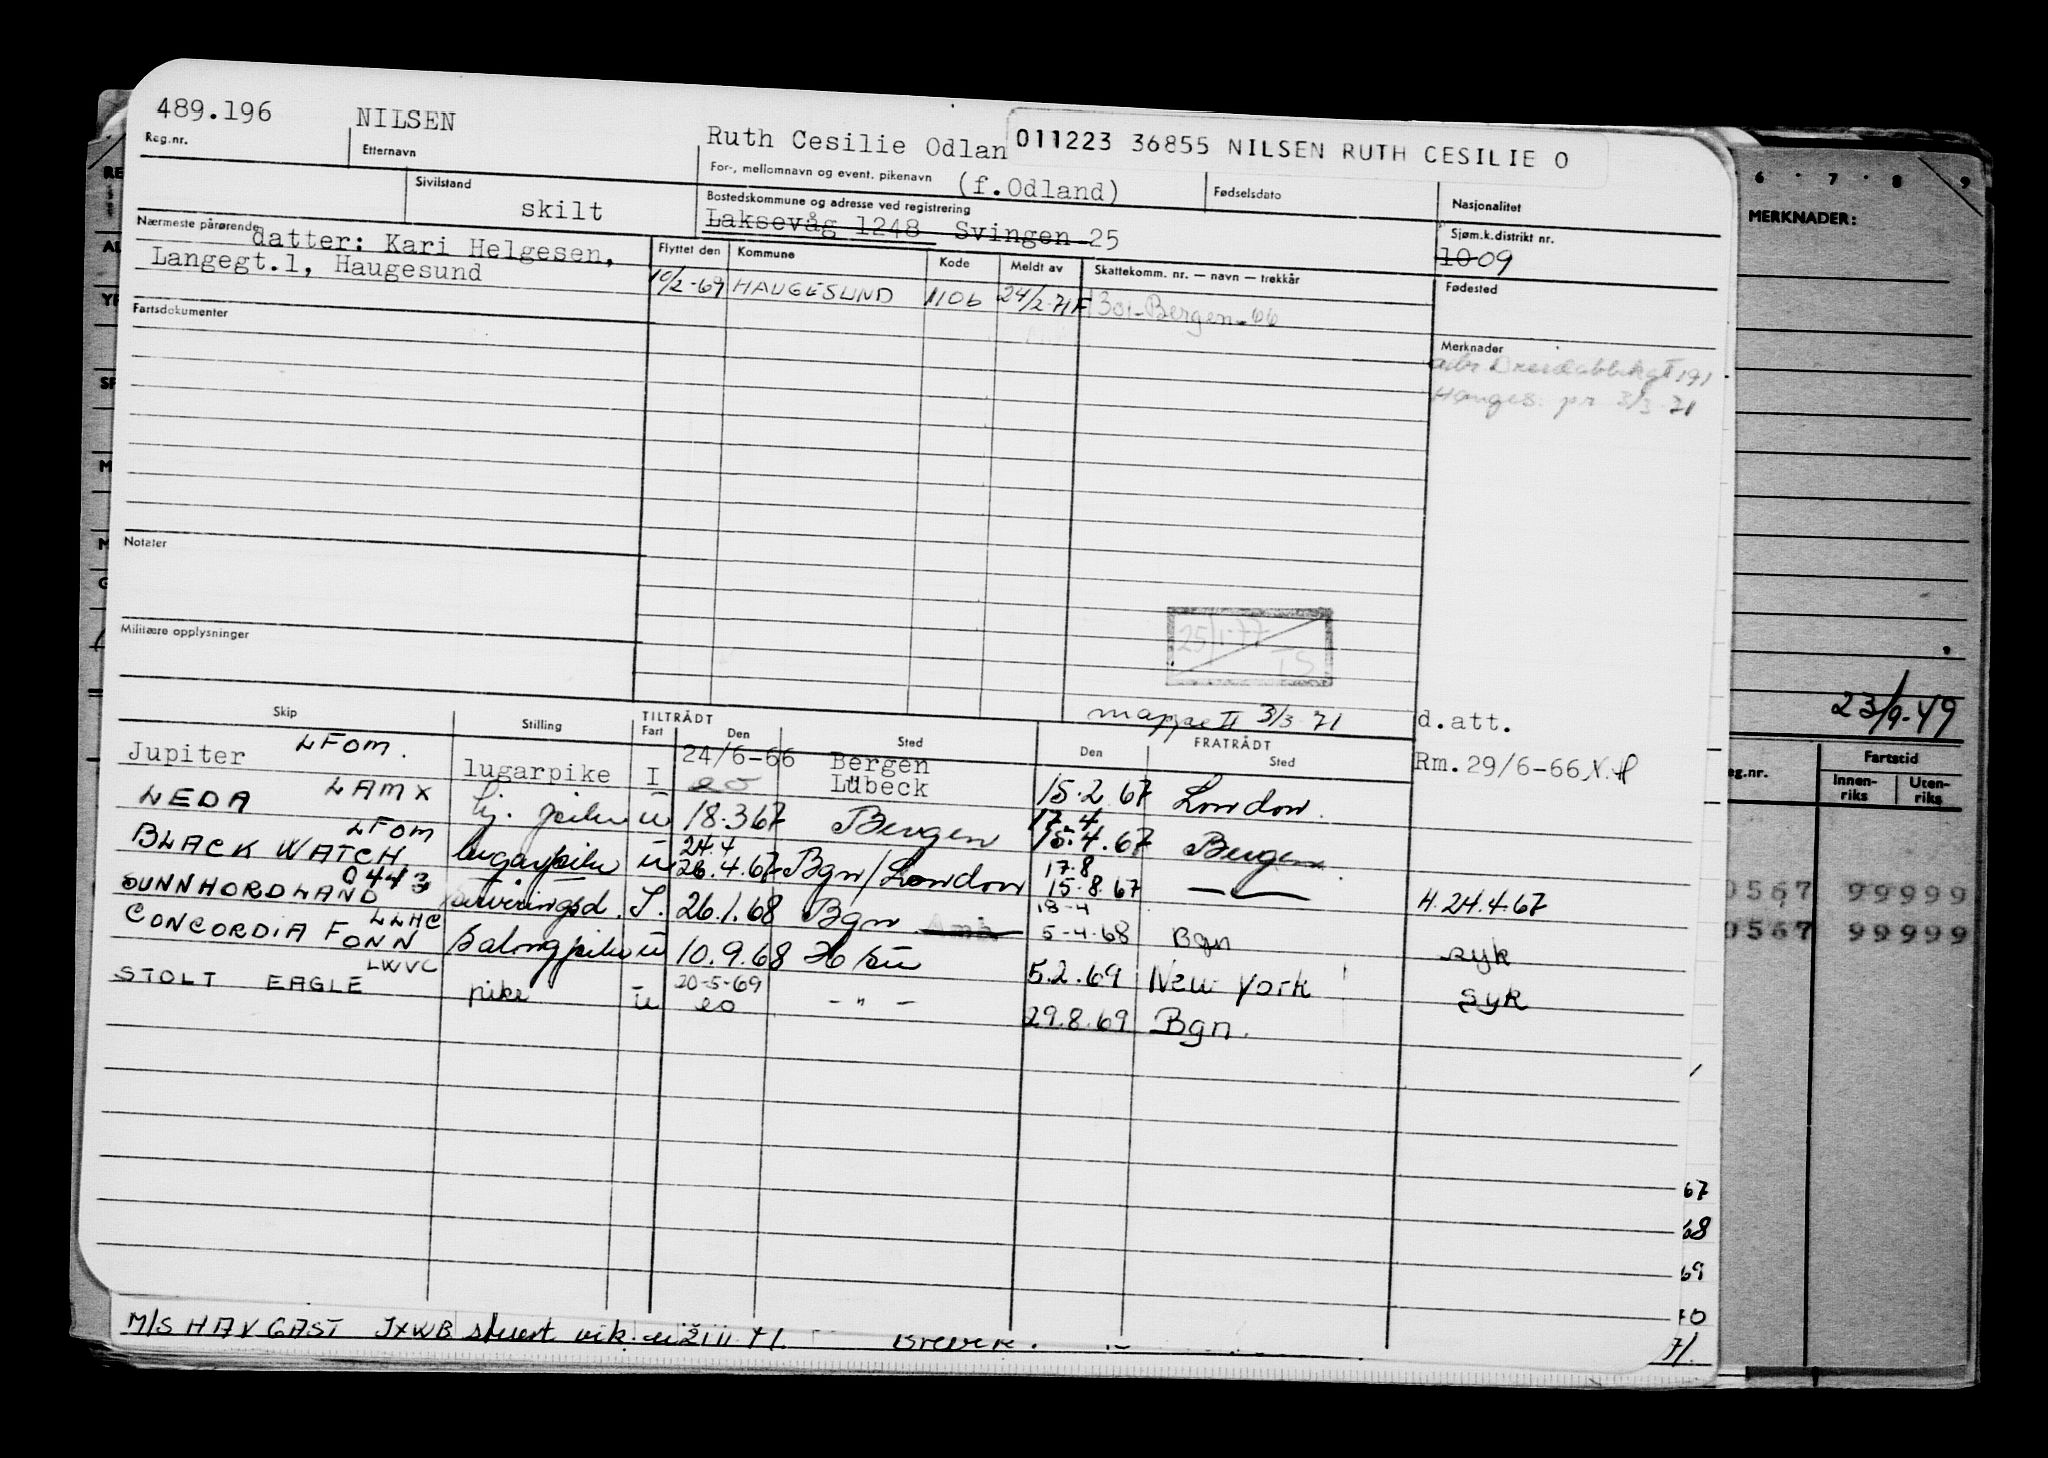 489.196 NILSEN Ruth Cesilie Odlan 011223 36855 NILSEN RUTH CESILIE O
Reg.nr. Etternavn For-, mellomnavn og event. pikenavn (f.Odland) Fødselsdato Nasjonalitet
Sivilstand skilt Bostedskommune og adresse ved registrering
Laksevåg 1248 Svingen 25
Sjøm.k.distrikt nr.
10 09
Nærmeste pårørende
datter: Kari Helgesen,
Langegt.1, Haugesund
Flyttet den Kommune Kode Meldt av Skattekomm. nr. — navn — trekkår Fødested
10/2-69 HAUGESUND 1106 24/2-71 F 1301-Bergen-66
Fartsdokumenter
Merknader
191
Hauges. pr 3/3-71
Notater
25/1-77
Militære opplysninger
mappe II 3/3-71 d.att.
Skip Stilling TILTRÅDT Fart Den Sted Den FRATRÅDT Sted
Jupiter LFOM. lugarpike I 24/6-66 Bergen Lübeck 15.2.67 London. Rm.29/6-66
LEDA LAMX pike u 18.3.67 Bergen 17.4 15.4.67 Bergen
BLACK WATCH LFOM lugarpike u 24.4 26.4.67 Bgn/London 17.8 15.8.67 H.24.4.67
SUNNHORDLAND 0443 serveringsd. I. 26.1.68 Bgn 18-4 5-4-68 Bgn syk
CONCORDIA FONN LLHC salongpike u 10.9.68 5.2.69 New York syk
STOLT EAGLE LWVC pike u 20-5-69 - " - 29.8.69 Bgn.
67
68
69
70
M/S HAVGAST JXWB stuert vik. 71.
6 7 8 9
MERKNADER:
23/9-49
Fartstid
eg.nr. Innen-riks Uten-riks
0567 99999
0567 99999